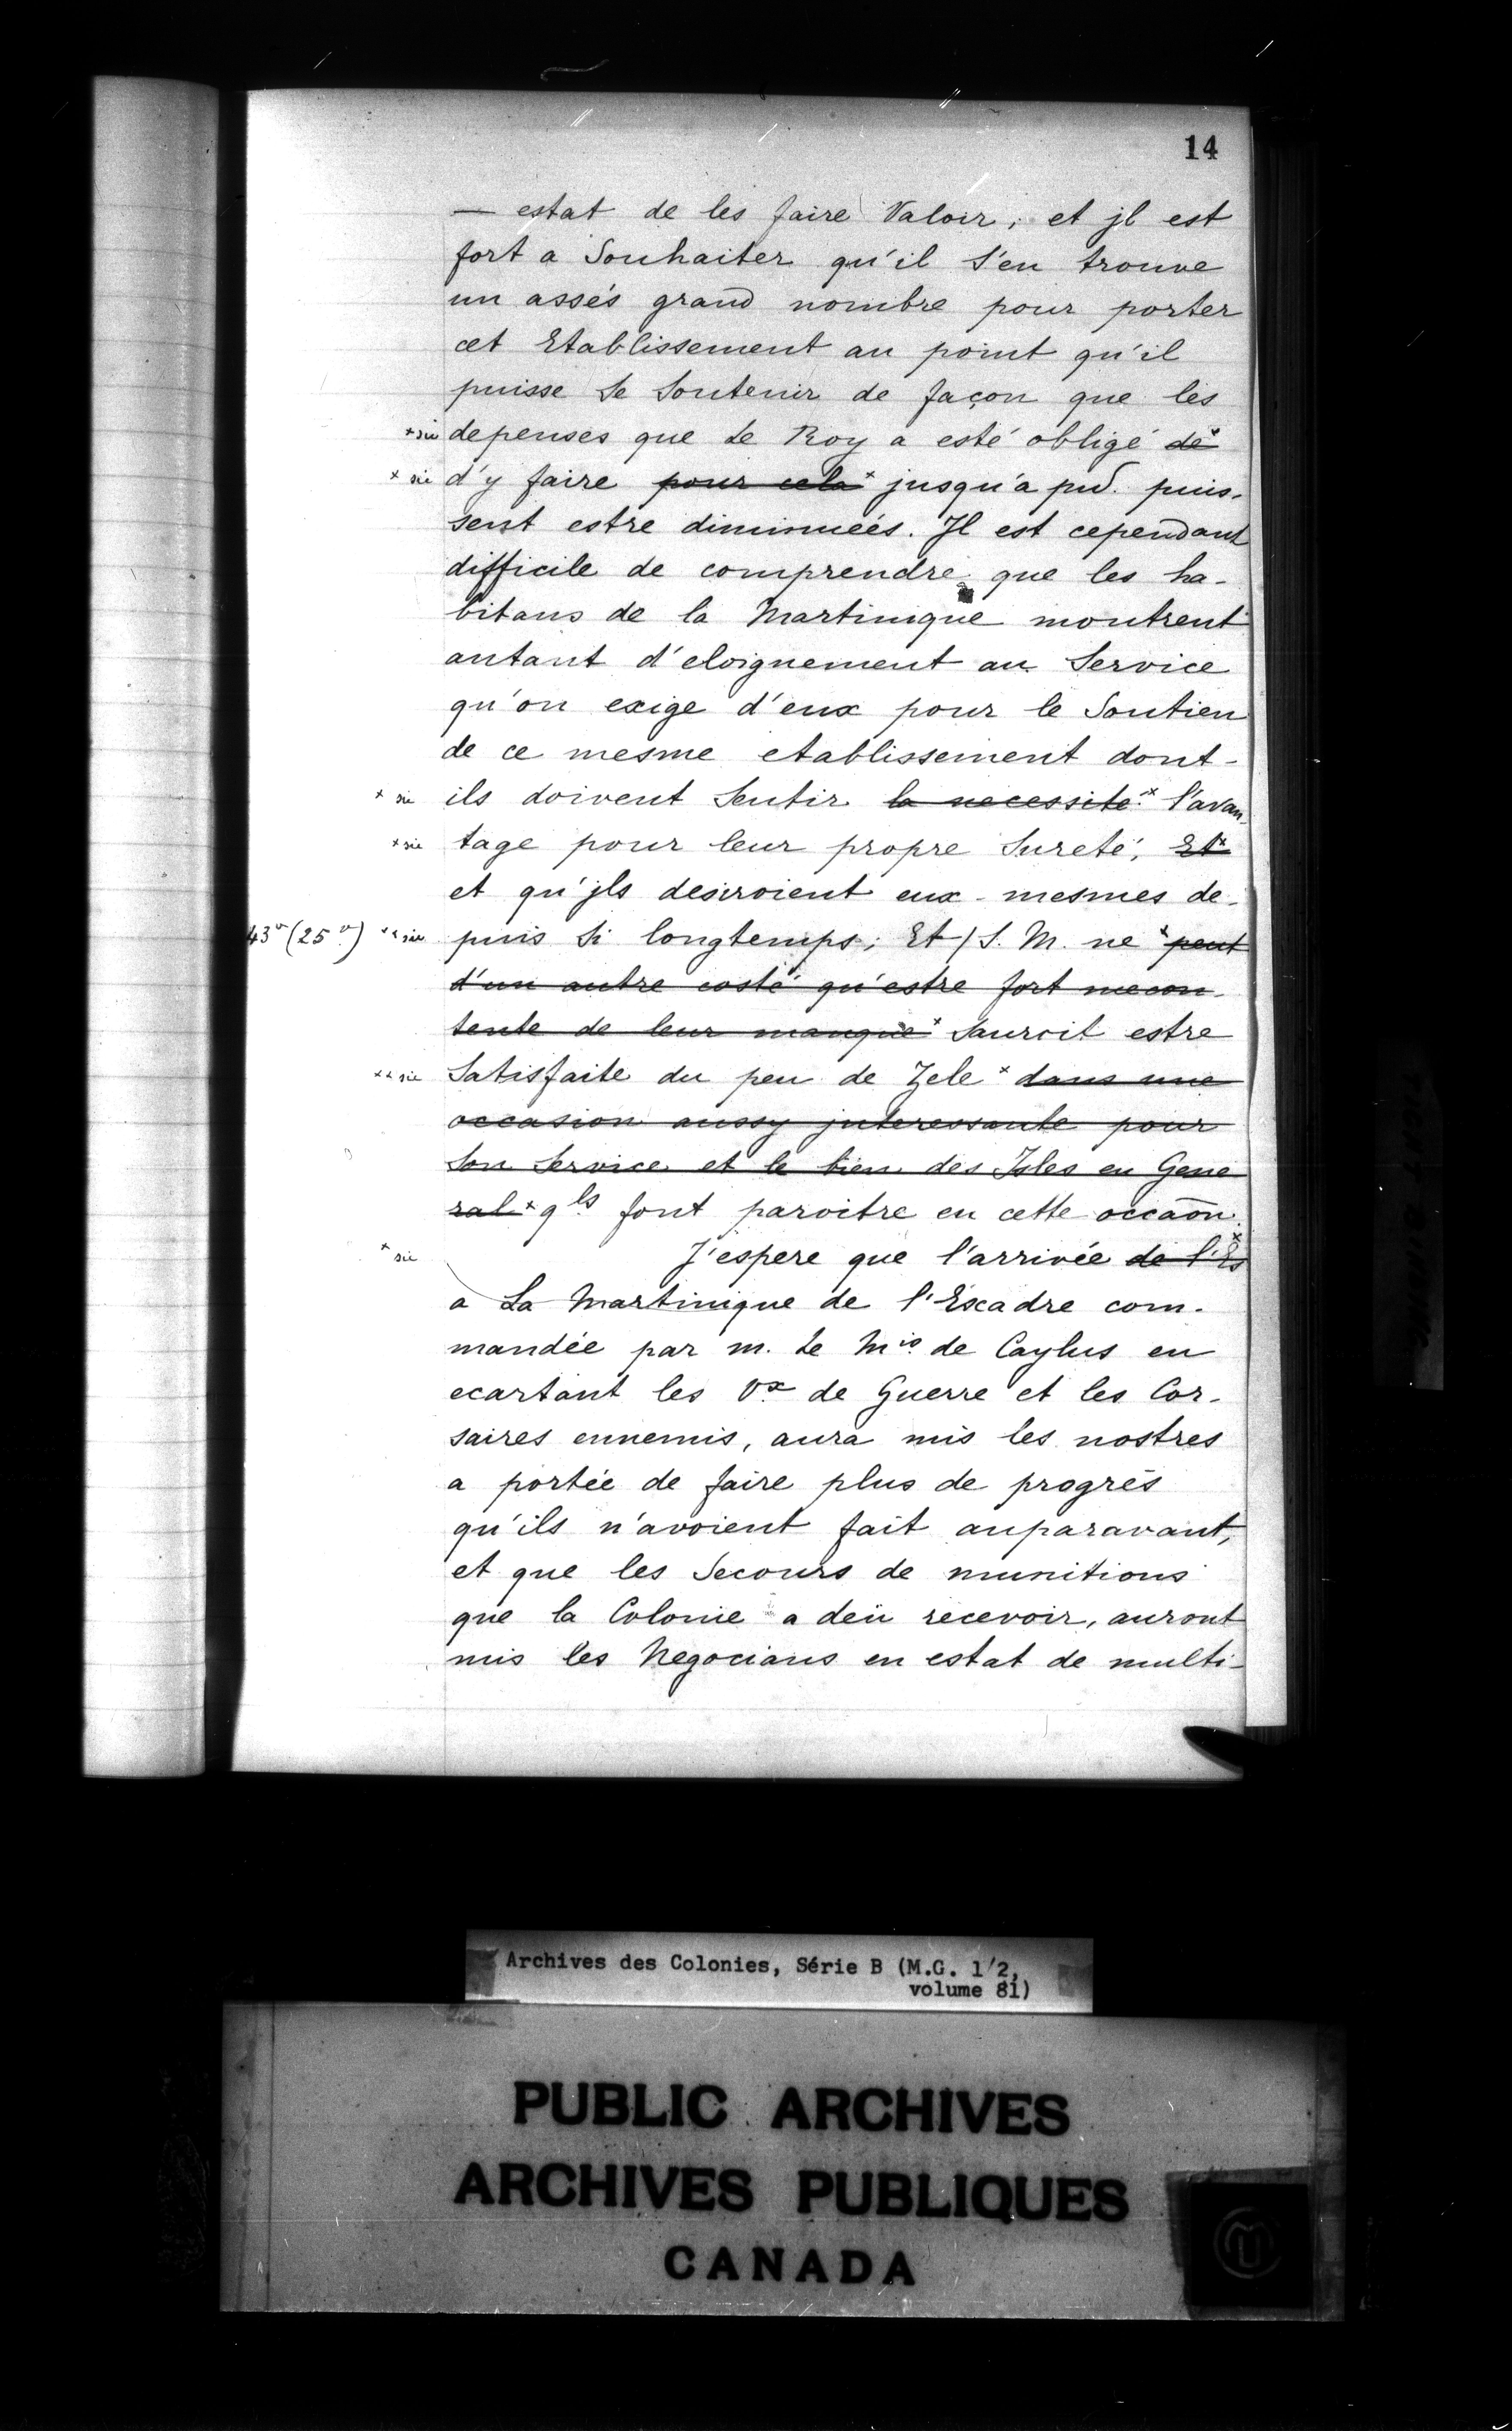 14
— estat de les faire Valoir, et jl est
fort a Souhaiter qu'il s'en trouve
un assés grand nombre pour porter
cet Etablissement au point qu'il
puisse Se Soutenir de façon que les
* sic depenses que Le Roy a esté obligé de*
* sic d'y faire pour cela* jusqu'a pnt. puis-
sent estre diminueés. Jl est cependant
difficile de comprendre que les ha-
bitans de la Martinique montrent
autant d'eloignement au Service
qu'on exige d'eux pour le Soutien
de ce mesme etablissement dont-
* sic ils doivent Sentir la necessite* l'avan-
* sic tage pour leur propre Sureté, Et*
et qu'jls desiroient eux-mesmes de-
43v (25v) ** sic puis Si longtemps; Et / S. M. ne * peut
d'un autre costé qu'estre fort mecon-
tente de leur manque* Sauroit estre
** sic Satisfaite du peu de Zele * dans une
occasion aussy jnteressante pour
Son Service et le bien des Isles en Gene
ral * qls font paroitre en cette occaon.
* sic J'espere que l'arrivée de l'Es*
a La Martinique de l'Escadre com-
mandée par m. Le Mis de Caylus en
ecartant les Vx de Guerre et les Cor-
saires ennemis, aura mis les nostres
a portée de faire plus de progrés
qu'ils n'avoient fait auparavant,
et que les Secours de munitions
que la Colonie a deü recevoir, auront
mis les Negocians en estat de multi-
Archives des Colonies, Série B (M.G. 1/2,
volume 81)
PUBLIC ARCHIVES
ARCHIVES PUBLIQUES
CANADA